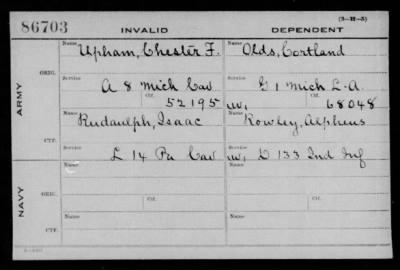 86703
INVALID
DEPENDENT
(3-H-5)
ARMY
ORIG.
Name Upham, Chester F.
Name Olds, Cortland
Service A 8 Mich Cav
Service G 1 Mich L-A
Ctf. 52195
W, Ctf. 68048
CTF.
Name Rudaulph, Isaac
Name Rowley, Alpheus
Service L 14 Pa Cav
Service W, D 133 Ind Inf
NAVY
ORIG.
Name
Name
Ctf.
Ctf.
CTF.
Name
Name